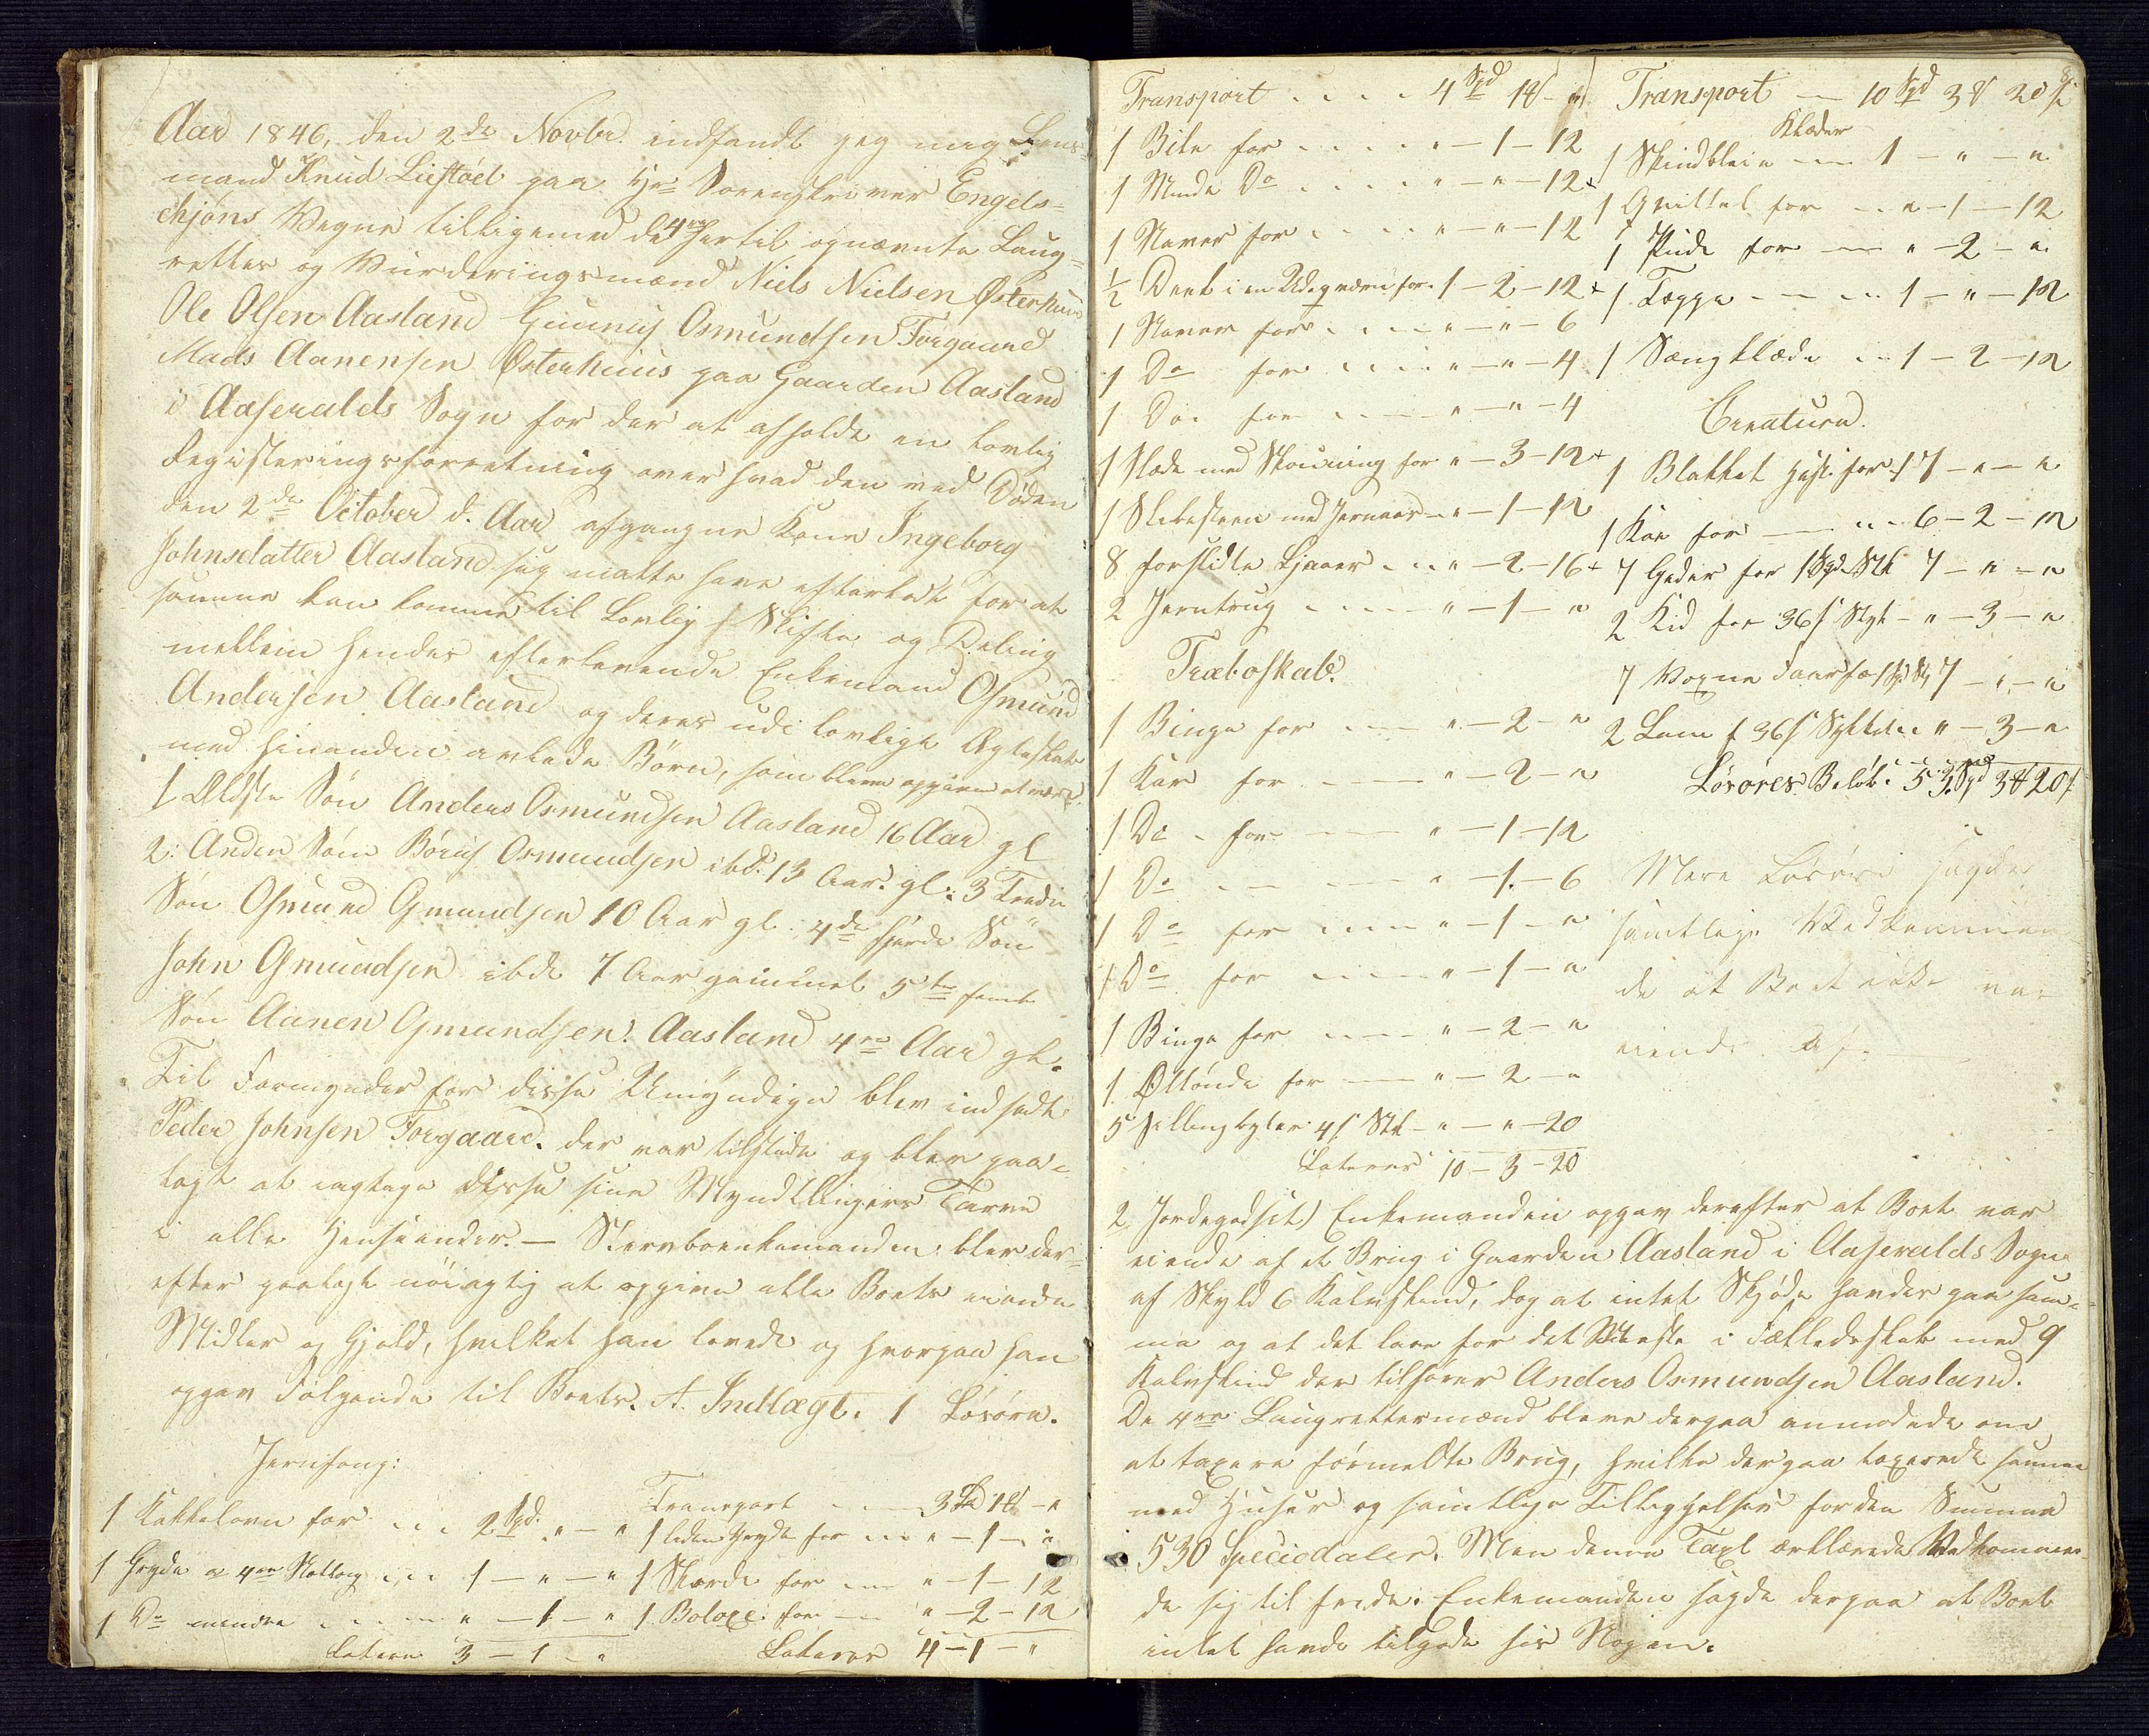 Aar 1846, den 2de Novbr. indfandt jeg mig Lens=
mand Knud Liestöel paa Hr. Sorenskriver Engels=
chjöns Vegne tilligemed de 4re hertil opnævnte Laug=
rettes og Vurderingsmænd Niels Nielsen Österhuus
Ole Olsen Aasland Gunuf Osmundsen Forgaard
Mads Aanensen Österhuus paa Gaarden Aasland
i Aaseralds Sogn for der at afholde en lovlig
Registeringsforretning over hvad den ved Döden
den 2de October d. Aar afgangne Kone Ingeborg
Johnsdatter Aasland sig matte have efterladt for at
samme kan komme til Lovlig Skifte og Deling
mellem hendes efterlevende Enkemand Osmund
Andersen Aasland og deres udi lovligt Ægteskab
med hinanden avlede Börn, som bleve opgivne at være
1 Ældste Sön Anders Osmundsen Aasland 16 Aar gl
2: Anden Sön Böruf Osmundsen ibd. 13 Aar gl: 3 Tredie
Sön Osmund Osmundsen 10 Aar gl. 4de fjerde Sön
John Osmundsen ibde 7 Aar gammel 5te femte
Sön Aanen Osmundsen Aasland 4re Aar gl.
Til Formynder for disse Umyndige blev indsadt
Peder Johnsen Forgaard. der var tilstede og blev paa=
lagt at iagtage disse sine Myndtlingers Tarve
i alle Henseender. — Stervboenkemanden blev der=
efter paalagt nöiagtig at opgive alle Boets eiende
Midler og Gjeld, hvilket han lovede og hvorpaa han
opgav Fölgende til Boets. A. Indtægt. 1 Lösöre.
Jernfang:
1 Kakkelovn for 2 Spd. " — "
1 Gryde a 4re 1 — " — "
1 Do mindre " — 1 — "
Latere 3 — 1 — "
Transport 3 Spd 1 — "
1 liden Gryde for " — 1 — "
1 for " — 1 — 12
1 Boloxe for " — 2 — 12
Lateres 4 — 1 — "
Transport 4 Spd 1 — "
1 Bile for " — 1 — 12
1 Minde Do " — " — 12
1 Naver for " — " — 12
1/2 Deel i en for 1 — 2 — 12
1 Naver for " — " — 6
1 Do for " — " — 4
1 Do for " — " — 4
1 Slæde med Skouning for " — 3 — 12
1 Slibesteen med " — 1 — 12
8 forslidte Ljaaer " — 2 — 16
2 Jerntrug " — 1 — "
Træboskab.
1 Binge for " — 2 — "
1 Kar for " — 2 — "
1 Do for " — 1 — 12
1 Do " — 1 — 6
1 Do for " — 1 — "
1 Do for " — 1 — "
1 Binge for " — 2 — "
1 Öltönde for " — 2 — "
5 4 s Stk " — " — 20
Lateres 10 — 3 — 20
Transport 10 Spd 3 20 s
Klæder
1 Skindbleie 1 — " — "
1 for " — 1 — 12
1 Pude for " — 2 — "
1 Teppe 1 — " — 12
1 Sengklæde 1 — 2 — 12
Creatura.
1 Blakket Hest for 17 — " — "
1 Koe for 6 — 2 — 12
7 Geder for 1 Spd Stk 7 — " — "
2 Kid for 36 s Styk " — 3 — "
7 Voxne Faar 7 — " — "
2 Lam f 36 s Stykket " — 3 — "
Lösöres Belöb 53 Spd 3 20 s
Mere Lösöre sagde
samtlige Vedkommen
de at Boet ikke var
eiende af.
2 Jordegodset) Enkemanden opgav derefter at Boet var
eiende af et Brug i Gaarden Aasland i Aaseralds Sogn
af Skyld 6 Kalvskind, dog at intet Skjöde havdes paa sam=
me og at det laae for det Meste i Fælledsskab med 9
Kalvskind der tilhörer Anders Osmundsen Aasland.
De 4re Laugrettesmænd bleve derpaa anmodede om
at taxere formeldte Brug, hvilke derpaa taxerede samme
med Huser og samtlige Tilliggelser for den Summa
530 Speciedaler. Men denne Taxt erklærede Vedkommen
de sig til freds. Enkemanden sagde derpaa at Boet
intet havde tilgode hos Nogen.